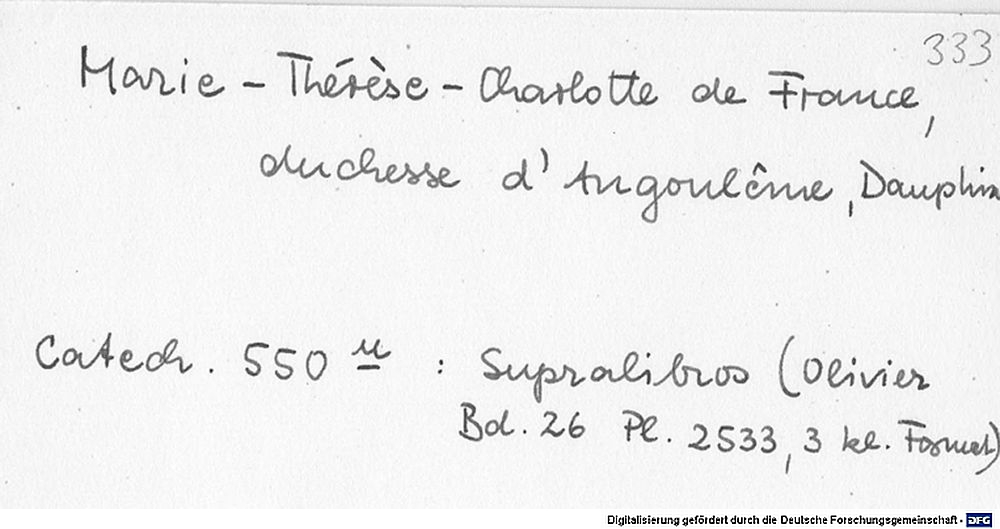 333
Marie - Thérèse - Charlotte de France,
duchesse d'Angoulême, Dauphin
Catech. 550 u : Supralibros (Olivier
Bd. 26 Pl. 2533, 3 kl. Format)
Digitalisierung gefördert durch die Deutsche Forschungsgemeinschaft - DFG